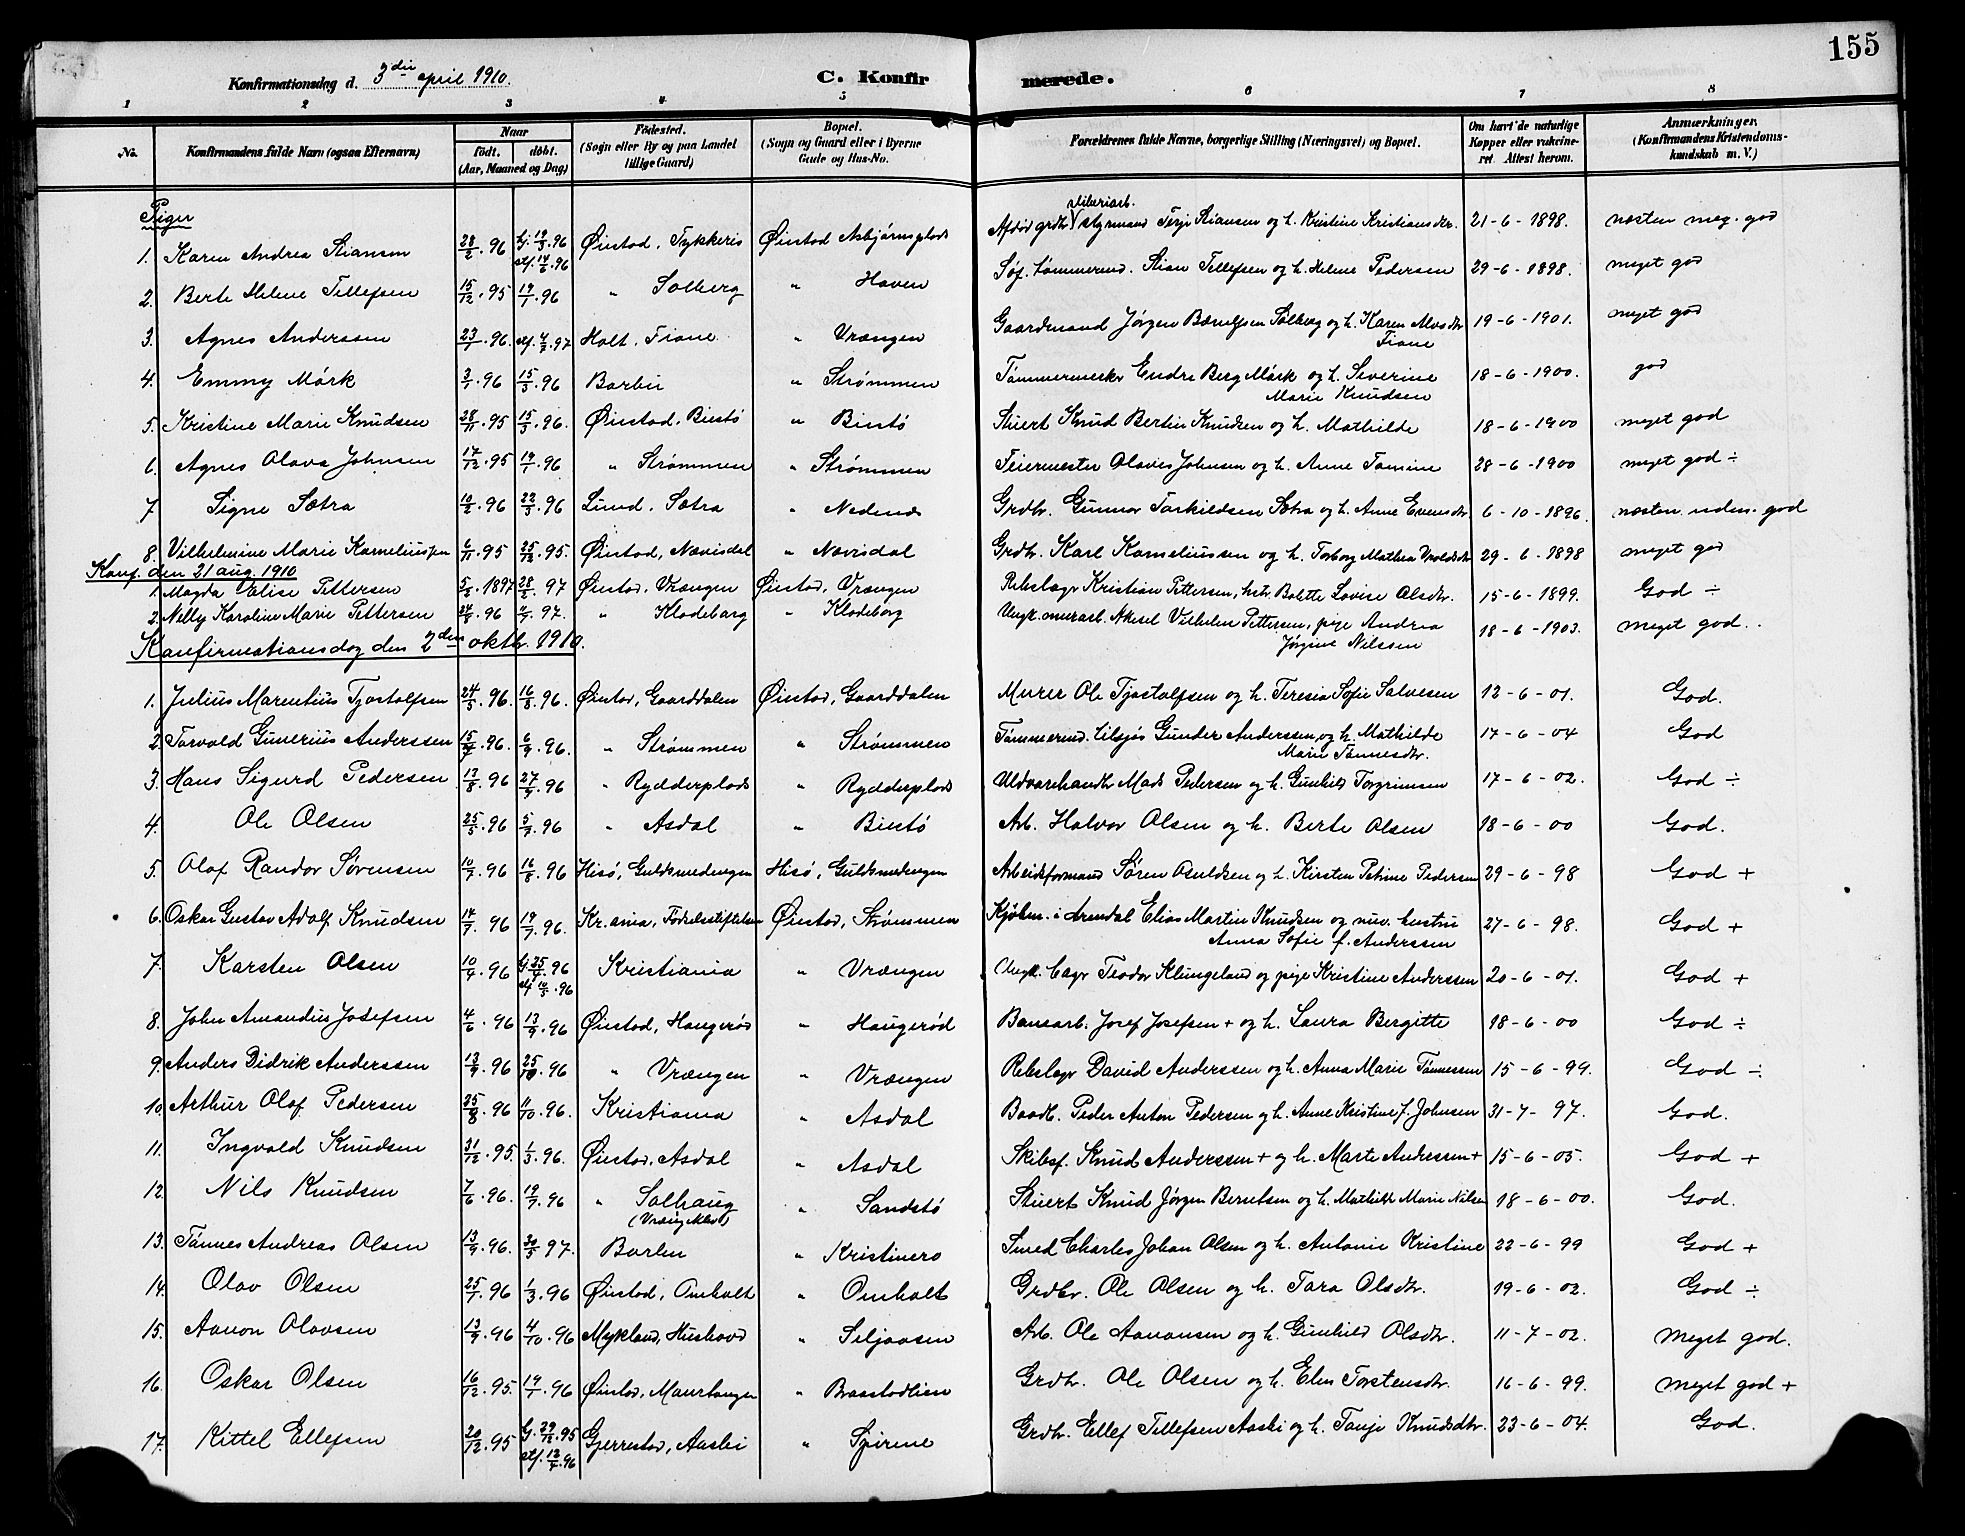 155
Konfirmationsdag d. 3die april 1910. C. Konfirmerede.
1 2 3 4 5 6 7 8
No. Konfirmandens fulde Navn (ogsaa Efternavn) Naar født. døbt. (Aar, Maaned og Dag) Fødested. (Sogn eller By og paa Landet tillige Gaard) Bopæl. (Sogn og Gaard eller i Byerne Gade og Hus-No. Forældrenes fulde Navne, borgerlige Stilling (Næringsvei) og Bopæl. Om havt de naturlige Kopper eller vaksineret. Attest herom. Anmærkninger. (Konfirmandens Kristendomskundskab m. V.)
Piger
1. Karen Andrea Stiansen 28/2.96 hj. 19/3.96 stf. 14/6.96 Øiestad, Tykkeris Øiestad Asbjørnsplads styrmand Terje Stiansen og h. Kristine Kristiansdtr. 21-6-1898. næsten meg. god
2. Berte Helene Tellefsen 15/12.95 19/1.96 " Solberg " Haven Søf. tømmermd. Stian Tellefsen og h. Helene Pedersen 29-6-1898. meget god
3. Agnes Anderssen 23/1.96. stf. 4/7.97 Holt, Fiane " Vrængen Gaardmand Jørgen Solberg og h. Karen Fiane 19-6-1901. meget god
4. Emmy Mørk 3/1.96 15/3.96 Barbu " Strømmen Tømmermester Endre Berg Mørk og h. Severine Marie Knudsen 18-6-1900. god
5. Kristine Marie Knudsen 28/11.95 15/3.96. Øiestad, Biestø " Biestø Stuert Knud Bertin Knudsen og h. Mathilde 18-6-1900 meget god
6. Agnes Olava Johnsen 17/12.95 19/1.96 " Strømmen " Strømmen Feiermester Olavus Johnsen og h. Anne Tomine 28-6-1900 meget god ÷
7 Signe Sætra 10/2.96 22/3.96 Lund, Sætra " Nedenæs Grdbr. Gunnar Tarkildsen Sætra og h. Anne Evensdtr 6-10-1896. næsten uden. god
8. Vilhelmine Marie Korneliussen 6/11.95 25/12.95. Øiestad, Nævisdal " Nævisdal Grdbr. Karl Korneliussen og h. Torborg Mathea 29-6-1898 meget god
Konf. den 21 aug. 1910
1. Magda Elise Pettersen 5/2.1897 28/2.97 Øiestad, Vrængen Øiestad, Vrængen Rebslagr Kristian Pettersen, hst. Bolette Lovise Olsdtr. 15-6-1899. God ÷
2. Nelly Karoline Marie Pettersen 24/8.96 97. " Klodeborg " Klodeborg Ungk. murarb. Aksel Vilhelm Pettersen, pige Andrea Jørgine Nilssen 18-6-1903. meget god.
Konfirmationsdag den 2den oktbr. 1910.
1. Julius Marentius Tjostolfsen 24/5.96 16/8.96. Øiestad, Gaarddalen Øiestad, Gaarddalen Murer Ole Tjostolfsen og h. Teresia Sofie Salvesen 12-6-01. God.
2. Torvald Gunerius Anderssen 15/7.96. 6/9.96. " Strømmen " Strømmen Tømmermd. tilsjøs Gunder Anderssen og h. Mathilde Marie Tønnesdtr. 17-6-04 God
3. Hans Sigurd Pedersen 13/8.96 27/9.96 " Rydderplads " Rydderplads Uldvarehandlr Mads Pedersen og h. Gunhild Torgrimsen 17-6-02. God ÷
4. Ole Olsen 25/5.96 5/7.96 " Asdal " Biestø Arb. Halvor Olsen og h. Berte Olsen 18-6-00 God.
5. Olaf Randor Sørensen 10/7.96 16/8.96 Hisø, Guldsmedengen Hisø, Guldsmedengen Arbeidsformand Søren Osuldsen og h. Kirsten Petrine Pedersen 29-6-98 God +
6. Oskar Gustav Adolf Knudsen 14/7.96 19/7.96. Kr.ania, Fødselsstiftelsen Øiestad, Strømmen Kjøbm. i Arendal Elias Martin Knudsen og nuv. hustru Anna Sofie f. Anderssen 27-6-98. God +
7. Karsten Olsen 10/4.96 hj. 25/4.96 stf. 10/5.96 Kristiania " Vrængen Ungk. bagr Teodor Klungeland og pige Kristine Anderssen 20-6-01. God +
8. John Amandus Josefsen 4/6.96 13/9.96 Øiestad, Haugerød " Haugerød Banearb. Josef Josefsen + og h. Laura Bergitte 18-6-00 God ÷
9. Anders Didrik Anderssen 13/9.96 25/10.96 " Vrængen " Vrængen Rebslagr David Anderssen og h. Anna Marie Tønnessen 15-6-99. God ÷
10. Arthur Olaf Pedersen 25/8.96 11/10.96. Kristiania " Asdal Baadb. Peder Anton Pedersen og h. Anne Kristine f. Johnsen 31-7-97. God.
11. Ingvald Knudsen 31/12.95. 1/3.96. Øiestad, Asdal " Asdal Skibsf. Knud Anderssen + og h. Marte Anderssen + 15-6-05. God +
12. Nils Knudsen 7/6.96. 19/7.96 " Solhaug " Sandstø Stuert Knud Jørgen Berntsen og h. Mathilde Marie Nilsen 18-6-00. God.
13. Tønnes Andreas Olsen 13/9.96. 30/5.97. Barbu " Kristinero Smed Charles Johan Olsen og h. Antonie Kristine 22-6-99 God +
14. Olav Olsen 25/1.96 1/3.96 Øiestad, Omholt " Omholt Grdbr. Ole Olsen og h. Tara Olsdtr. 19-6-02. God ÷
15. Aanon Olavsen 13/9.96 4/10.96 Mykland, Hushovd " Seljaasen Arb. Ole Aanonsen og h. Gunhild Olsdtr. 11-7-02. Meget god.
16. Oskar Olsen 16/12.95 19/1.96 Øiestad, Maurtangen " Braastadlien Grdbr. Ole Olsen og h. Elen Torstensdtr. 16-6-99. Meget god +
17. Kittel Ellefsen 20/12.95 hj. 29/12.95 stf. 12/4.96 Gjerrestad, Aasbi " Spirene Grdbr. Ellef Tellefsen Aasbi og h. Tanje Knudsdtr. 23-6-04. God.